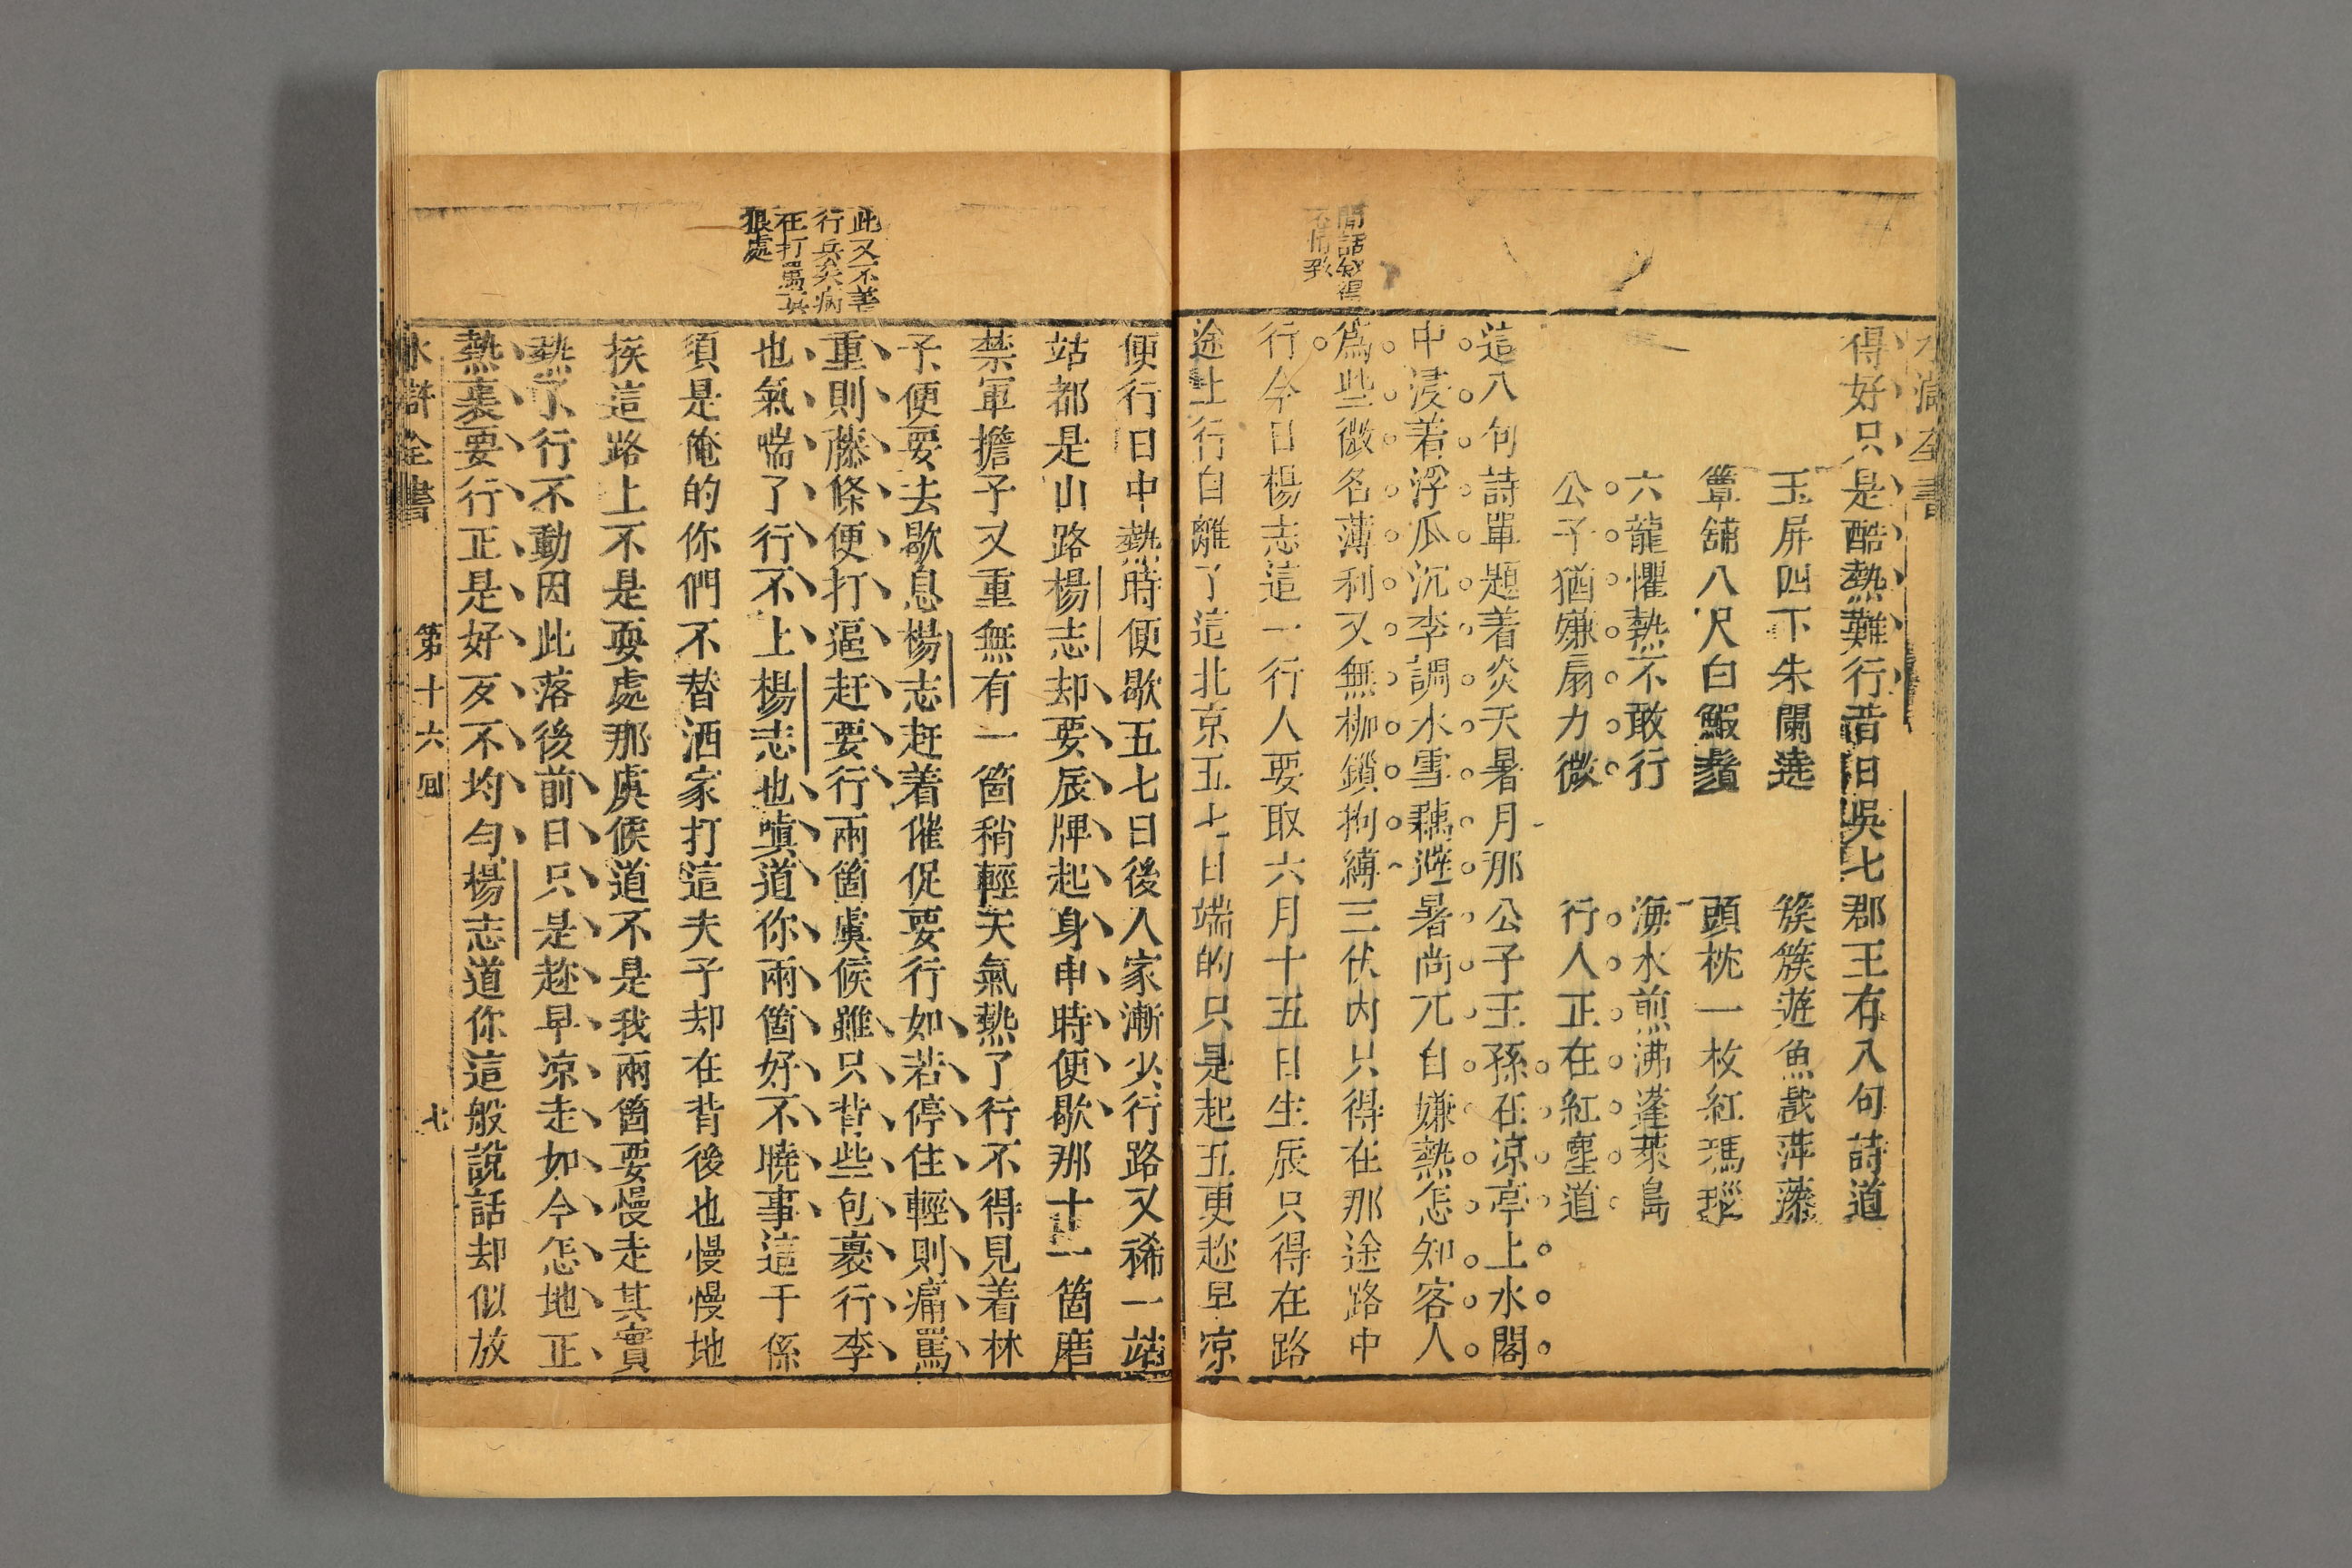 得好只是酷熱難行昔日吳七郡王有八句詩道
玉屏四下朱闌遶　簇簇游魚戲萍藻
簟鋪八尺白鰕鬚　頭枕一枚紅瑪瑙
六龍懼熱不敢行　海水煎沸蓬萊島
公子猶嫌扇力微　行人正在紅塵道
這八句詩單題着炎天暑月那公子王孫在凉亭上水閣
中浸着浮瓜沉李調氷雪藕避暑尚兀自嫌熱怎知客人
爲些微名薄利又無枷鎖拘縛三伏內只得在那途路中
行今日楊志這一行人要取六月十五日生辰只得在路
途上行自離了這北京五七日端的只是起五更趂早凉
閒話叙得
不情致
便行日中熱時便歇五七日後人家漸少行路又稀一站
站都是山路楊志却要辰牌起身申時便歇那十一箇廂
禁軍擔子又重無有一箇稍輕天氣熱了行不得見着林
子便要去歇息楊志赶着催促要行如若停住輕則痛罵
重則藤條便打逼赶要行兩箇虞候雖只背些包裹行李
也氣喘了行不上楊志也嗔道你兩箇好不曉事這干係
須是俺的你們不替洒家打這夫子却在背後也慢慢地
挨這路上不是耍處那虞候道不是我兩箇要慢走其實
熱了行不動因此落後前日只是趂早凉走如今怎地正
熱裏要行正是好歹不均勻楊志道你這般說話却似放
此又不善
行兵矣病
在打罵與
狠處
水滸全書　第十六回　七